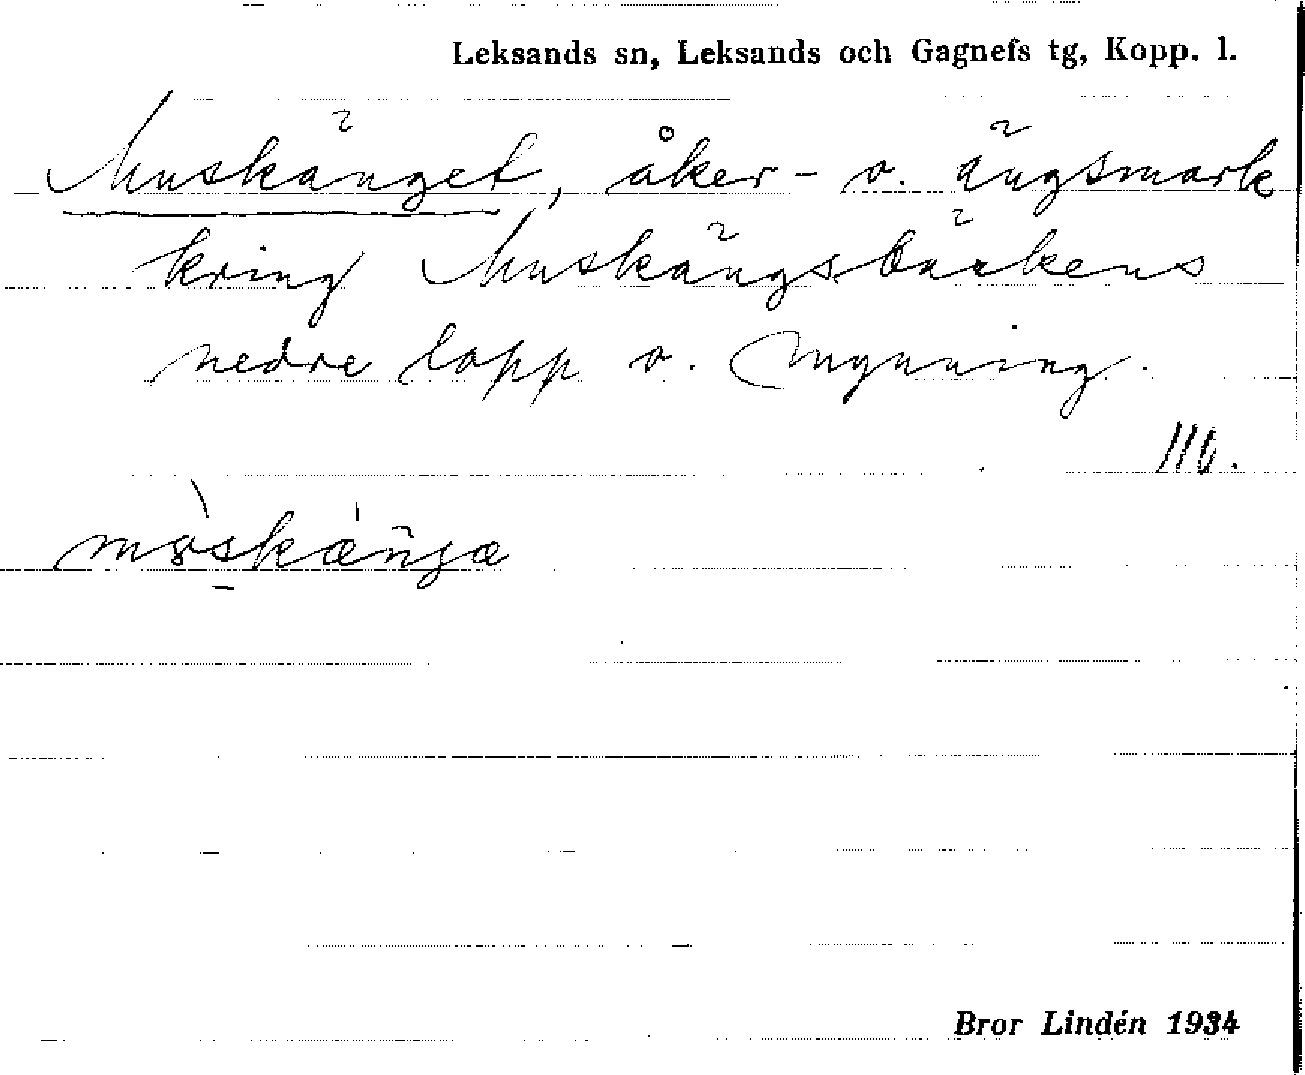 Leksands sn, Leksands och Gagnefs tg, Kopp. l.
Muskänget, åker- o. ängsmark
kring Muskängsbäckens
nedre lopp o. mynning.
Bror Lindén 1934